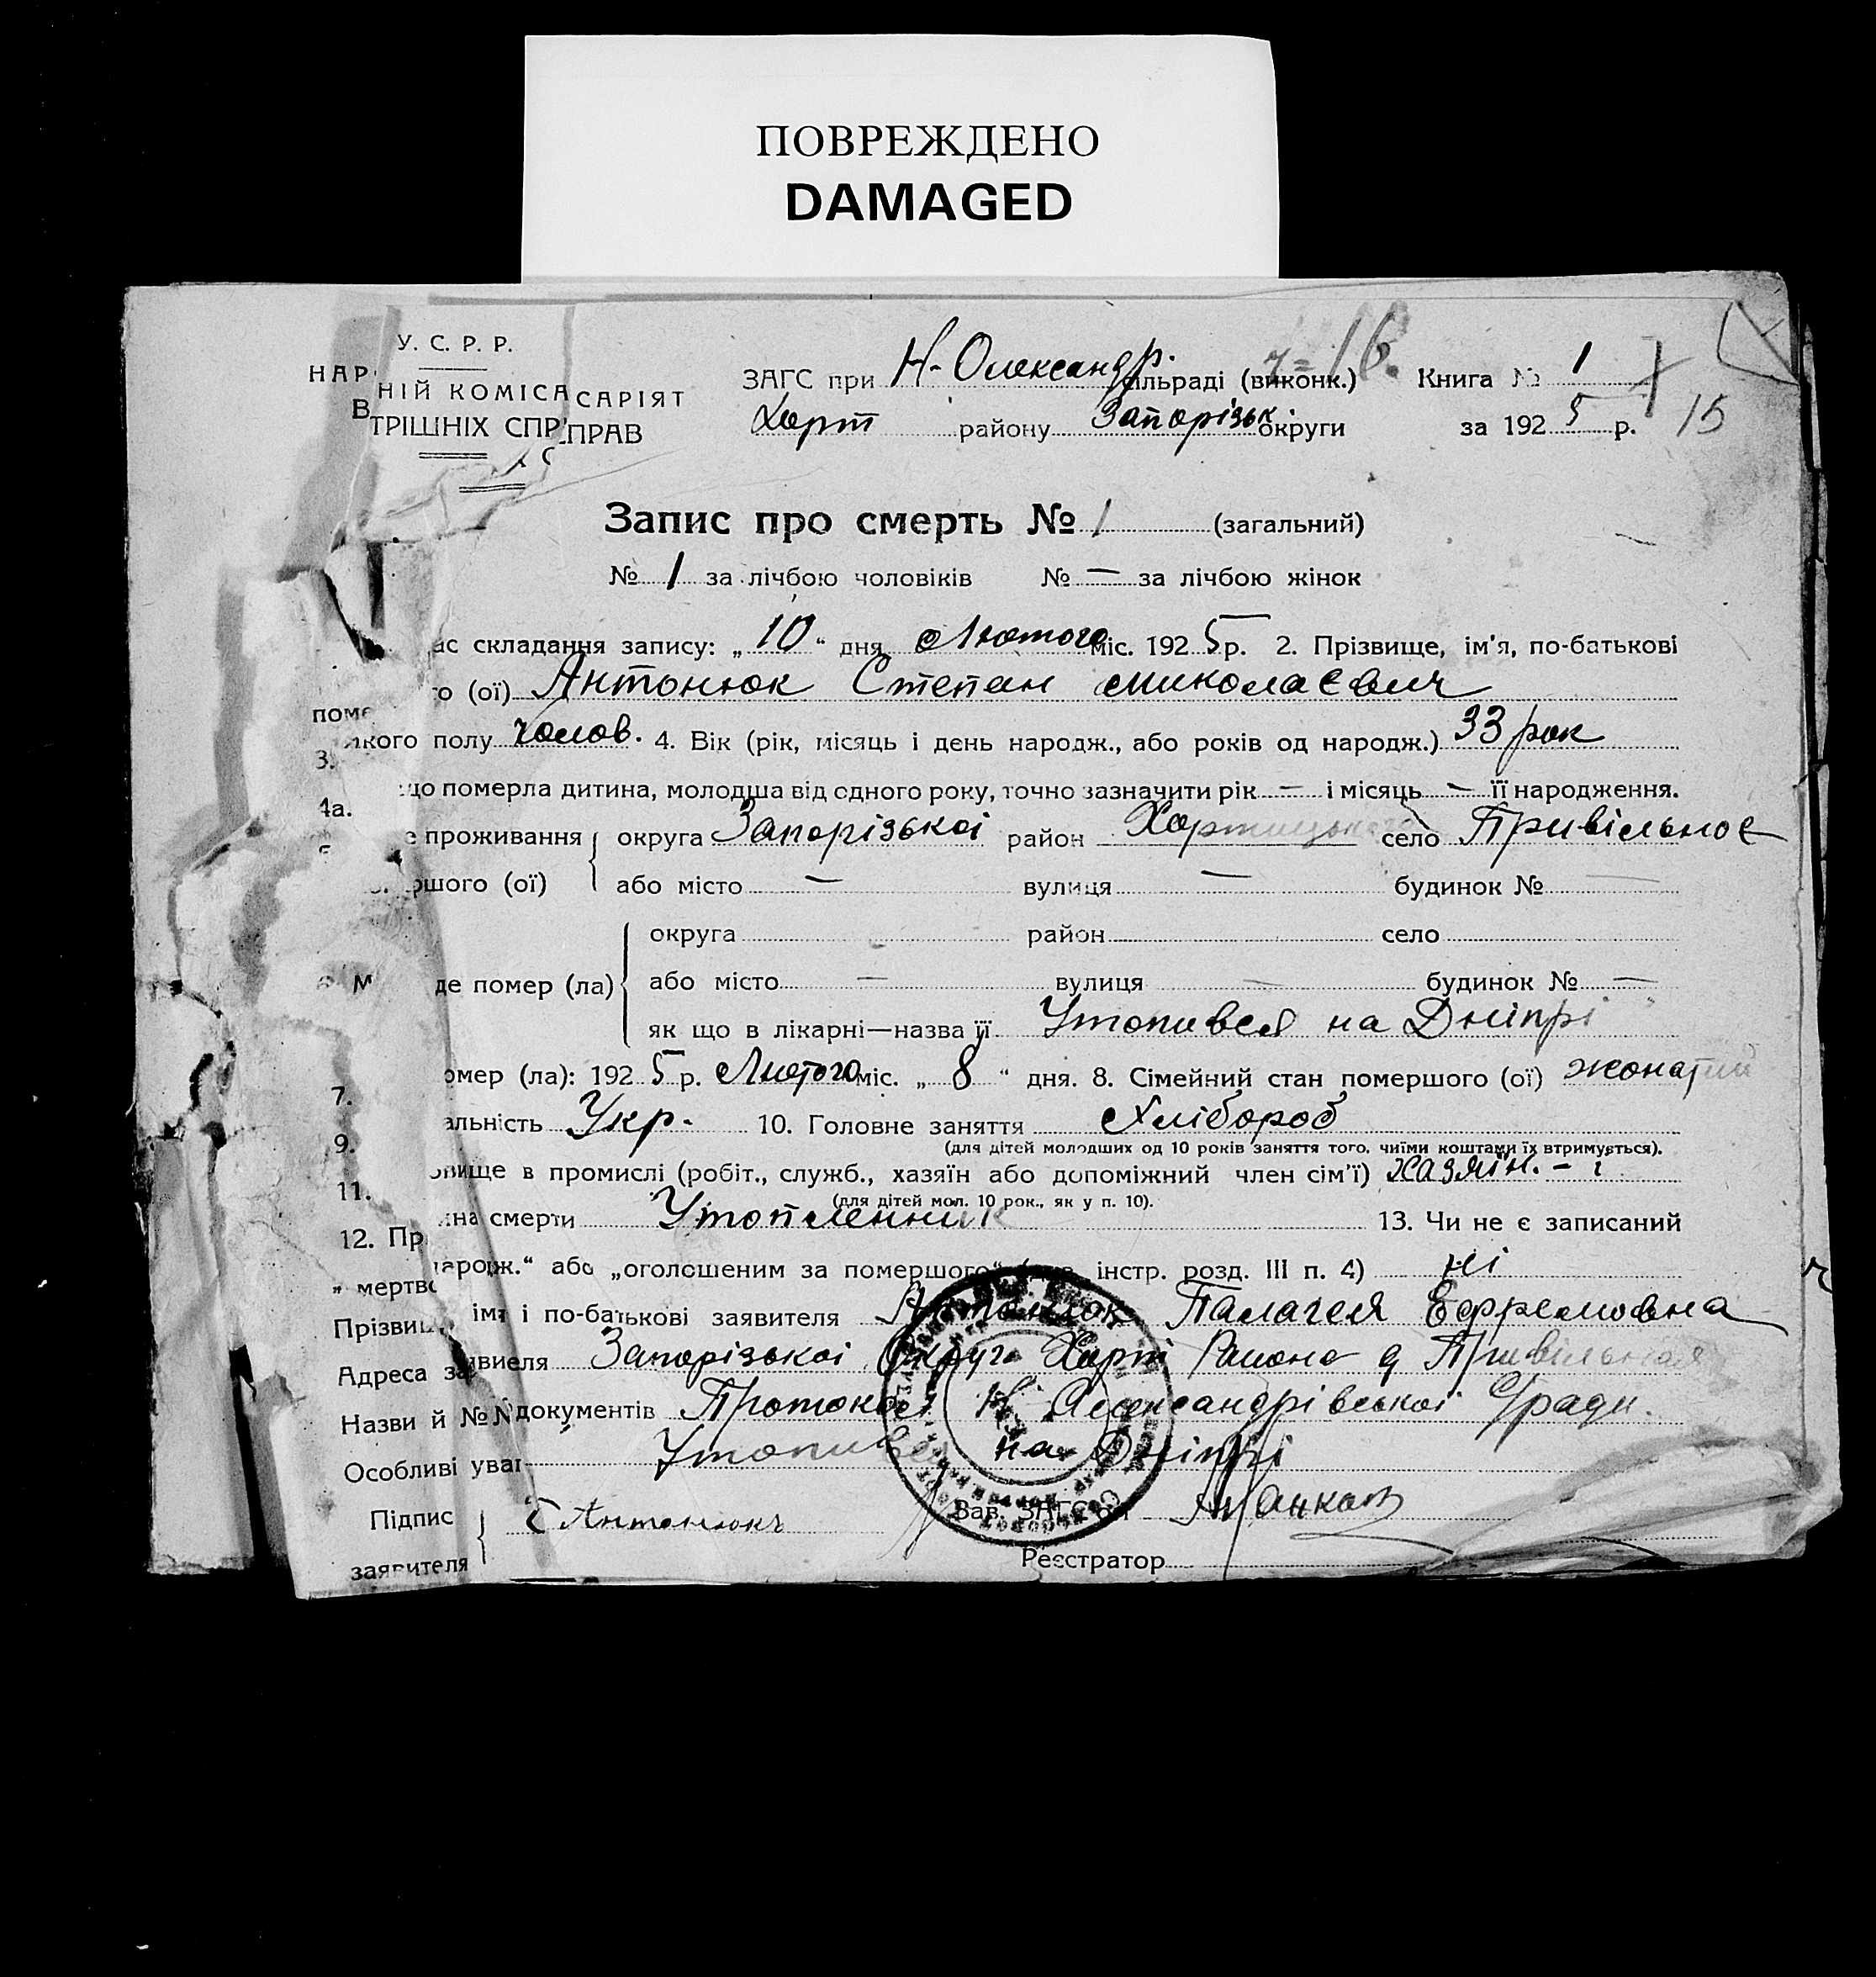 ПОВРЕЖДЕНО
DAMAGED
У. С. Р. Р.
НАР НІЙ КОМІСАСАРІЯТ
В ТРІШНІХ СПР ПРАВ
ЗАГС при Н-Олександр. сільраді (виконк.) Книга № 1
Хорт району Запорізьк округи за 1925 р. 15
Запис про смерть № 1 (загальний)
№ 1 за лічбою чоловіків № — за лічбою жінок
ас складання запису: „ 10 “ дня Лютого міс. 1925 р. 2. Прізвище, ім'я, по-батькові
поме го (ої) Антонюк Степан Миколаєвич
3. якого полу чолов. 4. Вік (рік, місяць і день народж., або років од народж.) 33 рок
4а. що померла дитина, молодша від одного року, точно зазначити рік — і місяць — її народження.
е проживання округа Запорізькоі район Хортицького село Привільноє
ршого (ої) або місто — вулиця — будинок № —
округа район село
6. М де помер (ла) або місто — вулиця — будинок № —
як що в лікарні—назва її Утопився на Дніпрі
7. омер (ла): 1925 р. Лютого міс. „ 8 “ дня. 8. Сімейний стан помершого (ої) жонатий
9. альність Укр. 10. Головне заняття Хлібороб
(для дітей молодших од 10 років заняття того, чиїми коштами їх втримується).
11. вище в промислі (робіт., служб., хазяїн або допоміжний член сім'ї) хазяїн. –
(для дітей мол. 10 рок., як у п. 10).
12. Пр ина смерти Утопленник 13. Чи не є записаний
„ мертво народж.“ або „оголошеним за помершого“ інстр. розд. III п. 4) ні
Прізвище ім'я і по-батькові заявителя Антонюк Палагея Ефремовна
Адреса заявиеля Запорізькоі Округи Хорт Району Привільная
Назви й №№ документів Протокол Н Александрівськоі С/ради.
Особливі уваг Утопився на Дніпрі
Підпис заявителя Антонюкъ Зав. ЗАГС'ом
Реєстратор